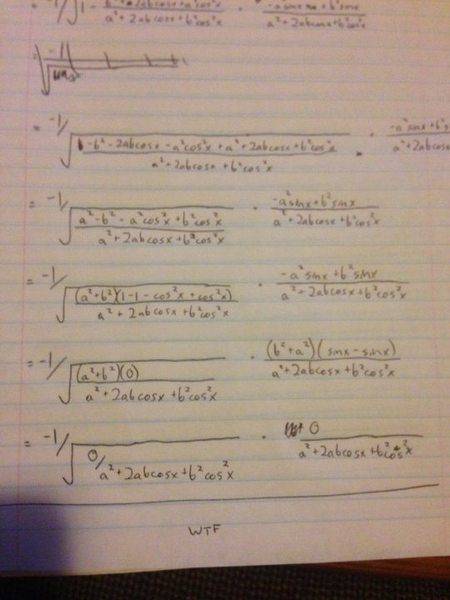 = -1/√1 - b²+2abcosx+a²cos²x / a²+2abcosx+b²cos²x · -a²sinx+b²sinx / a²+2abcosx+b²cos²x
= -1/√
= -1/√-b²-2abcosx-a²cos²x+a²+2abcosx+b²cos²x / a²+2abcosx+b²cos²x · -a²sinx+b²s / a²+2abcos
= -1/√a²-b²-a²cos²x+b²cos²x / a²+2abcosx+b²cos²x · -a²sinx+b²sinx / a²+2abcosx+b²cos²x
= -1/√(a²+b²)(1-1-cos²x+cos²x) / a²+2abcosx+b²cos²x · -a²sinx+b²sinx / a²+2abcosx+b²cos²x
= -1/√(a²+b²)(0) / a²+2abcosx+b²cos²x · (b²+a²)(sinx-sinx) / a²+2abcosx+b²cos²x
= -1/√0/a²+2abcosx+b²cos²x · 0 / a²+2abcosx+b²cos²x
WTF